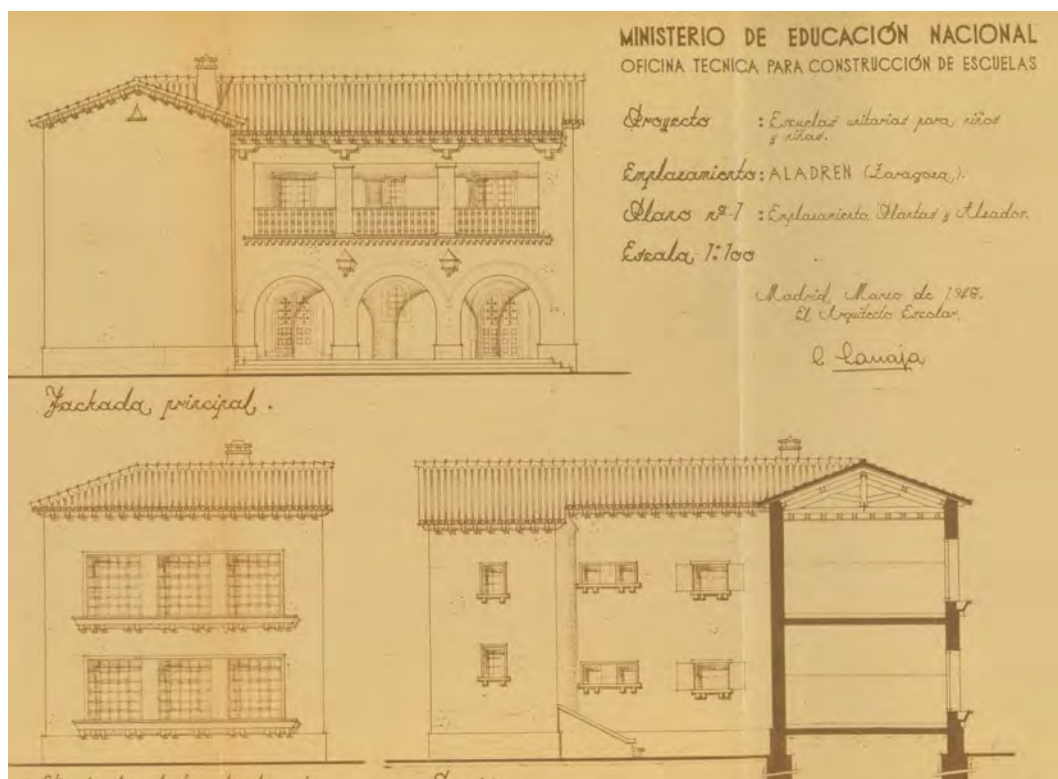 MINISTERIO DE EDUCACIÓN NACIONAL
OFICINA TECNICA PARA CONSTRUCCIÓN DE ESCUELAS
Proyecto : Escuelas unitarias para niños
y niñas.
Emplazamiento: ALADREN (Zaragoza).
Plano nº-1 : Emplazamiento, Plantas y Alzados.
Escala 1:100
Madrid, Marzo de 1948.
El Arquitecto Escolar,
Fachada principal.